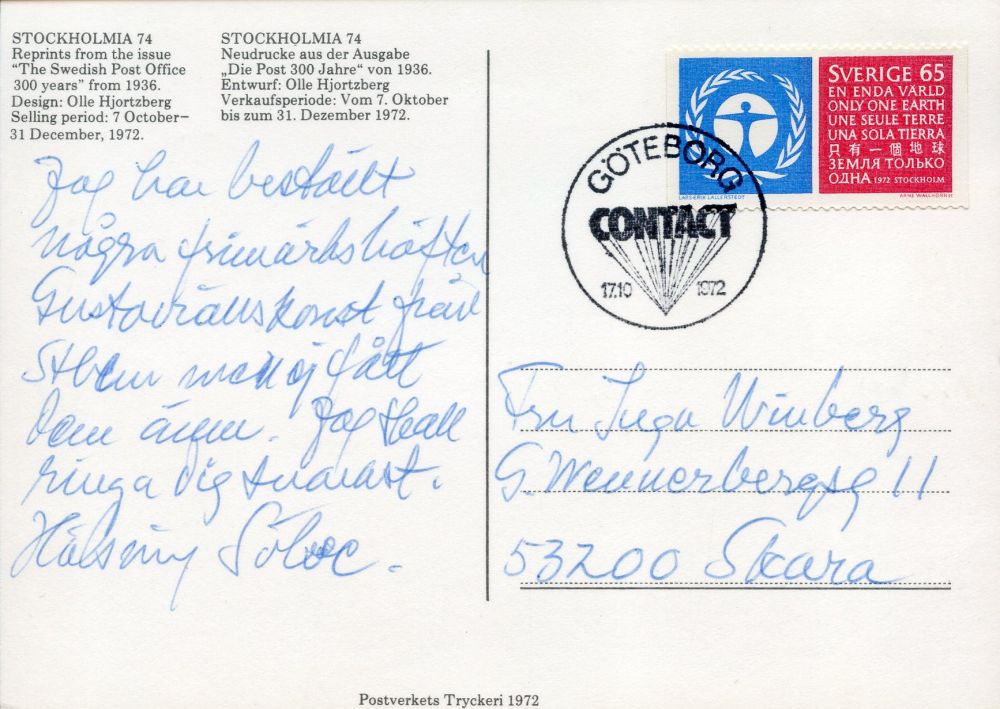 STOCKHOLMIA 74
Reprints from the issue
“The Swedish Post Office
300 years” from 1936.
Design: Olle Hjortzberg
Selling period: 7 October–
31 December, 1972.
STOCKHOLMIA 74
Neudrucke aus der Ausgabe
„Die Post 300 Jahre“ von 1936.
Entwurf: Olle Hjortzberg
Verkaufsperiode: Vom 7. Oktober
bis zum 31. Dezember 1972.
Jag har beställt
några frimärkshäften
Gustaviansk konst från
Sthlm men ej fått
dem ännu. Jag skall
ringa dig snarast.
Hälsning
GÖTEBORG
CONTACT
17.10 1972
LARS-ERIK LALLERSTEDT
SVERIGE 65
EN ENDA VÄRLD
ONLY ONE EARTH
UNE SEULE TERRE
UNA SOLA TIERRA
只有一個地球
ЗЕМЛЯ ТОЛЬКО
ОДНА 1972 STOCKHOLM
ARNE WALLHORN SC
Fru Inga Winberg
G. Wennerbergsg 11
53200 Skara
Postverkets Tryckeri 1972